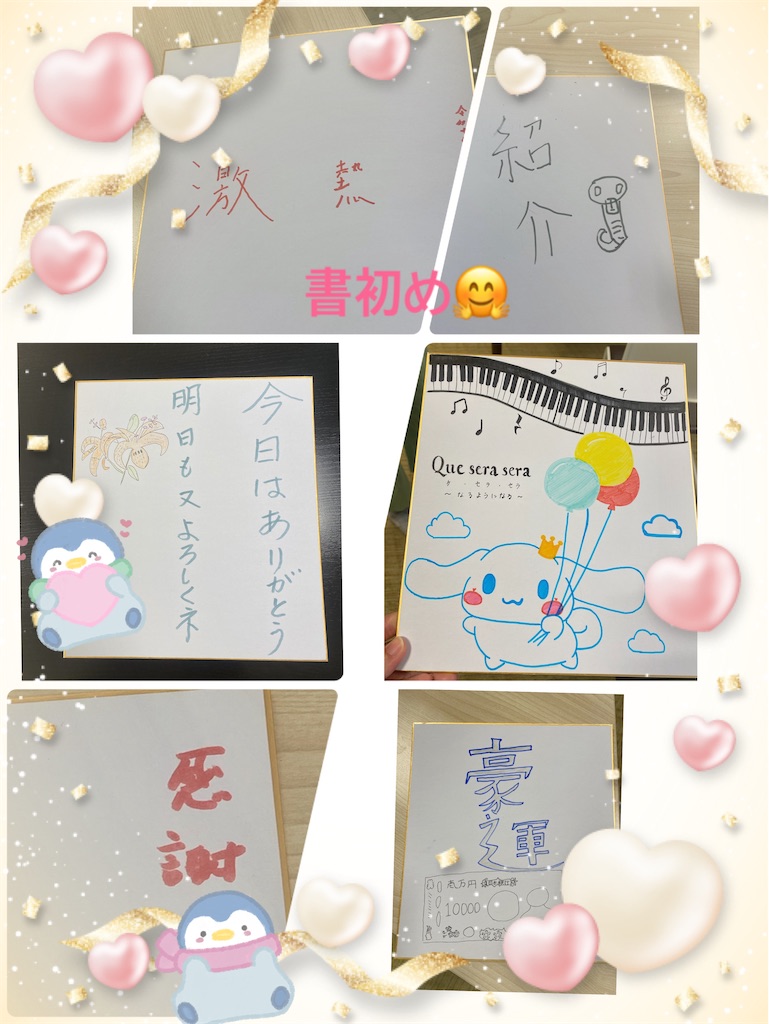 激熱
紹介
書初め🤗
今日はありがとう
明日も又よろしくネ
Que sera sera
ケ・セラ・セラ
～なるようになる～
感謝
豪運
壱万円
10000